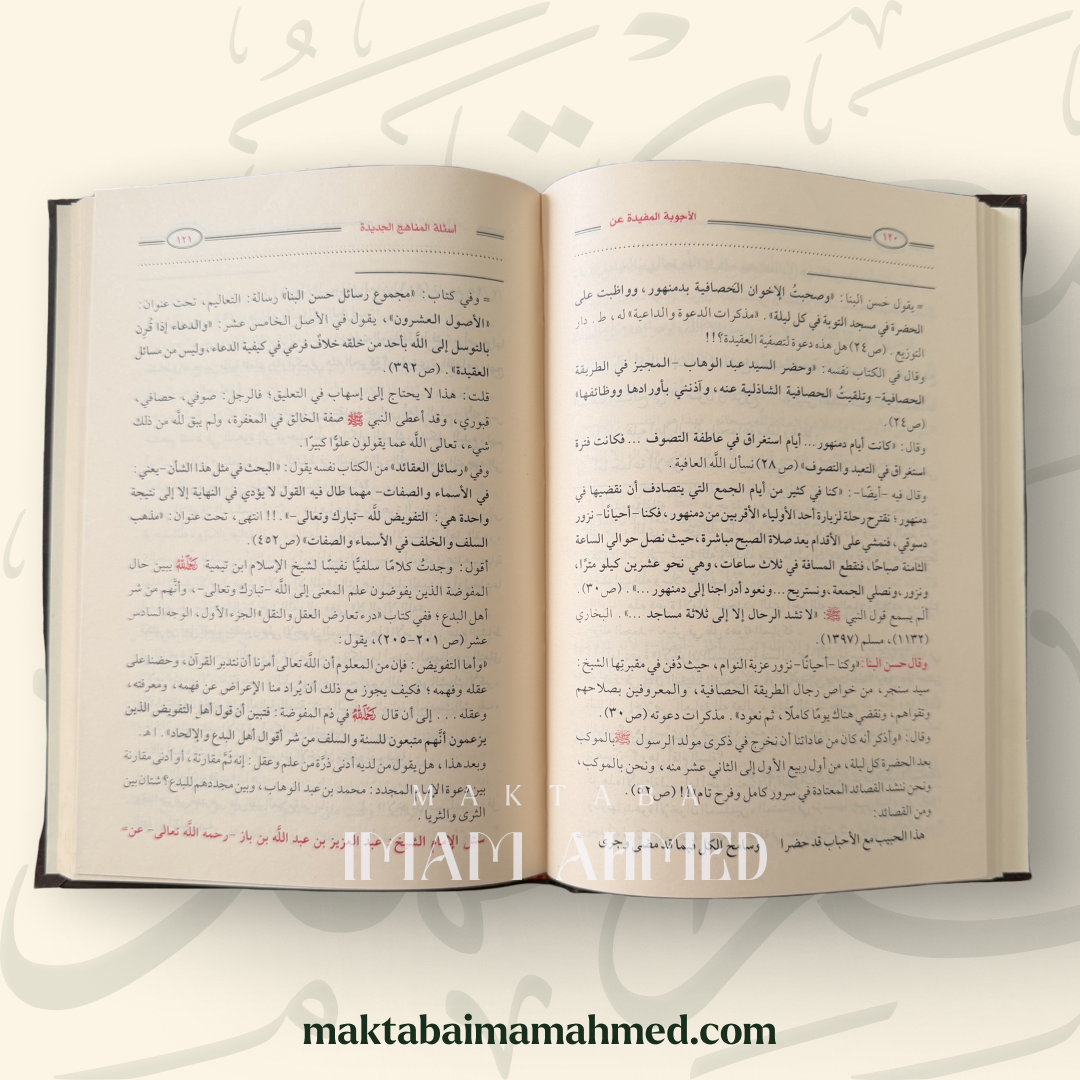 الأجوبة المفيدة عن
= يقول حسن البنا: «وصحبتُ الإخوان الحَصافية بدمنهور، وواظبت على
الحضرة في مسجد التوبة في كل ليلة». «مذكرات الدعوة والداعية» له، ط. دار
التوزيع. (ص٢٤) هل هذه دعوة لتصفية العقيدة؟!!
وقال في الكتاب نفسه: «وحضر السيد عبد الوهاب -المجيز في الطريقة
الحصافية- وتلقيتُ الحصافية الشاذلية عنه، وآذنني بأورادها ووظائفها»
(ص٢٤).
وقال: «كانت أيام دمنهور... أيام استغراق في عاطفة التصوف ... فكانت فترة
استغراق في التعبد والتصوف» (ص٢٨) نسأل اللَّه العافية.
وقال فيه -أيضًا-: «كنا في كثير من أيام الجمع التي يتصادف أن نقضيها في
دمنهور؛ نقترح رحلة لزيارة أحد الأولياء الأقربين من دمنهور، فكنا -أحيانًا- نزور
دسوقي، فنمشي على الأقدام بعد صلاة الصبح مباشرة، حيث نصل حوالي الساعة
الثامنة صباحًا، فنقطع المسافة في ثلاث ساعات، وهي نحو عشرين كيلو مترًا،
ونزور، ونصلي الجمعة، ونستريح... ونعود أدراجنا إلى دمنهور...». (ص٣٠).
ألم يسمع قول النبي ﷺ: «لا تشد الرحال إلا إلى ثلاثة مساجد ...». البخاري
(١١٣٢)، مسلم (١٣٩٧).
وقال حسن البنا: «وكنا -أحيانًا- نزور عزبة النوام، حيث دُفن في مقبرتها الشيخ:
سيد سنجر، من خواص رجال الطريقة الحصافية، والمعروفين بصلاحهم
وتقواهم، ونقضي هناك يومًا كاملًا، ثم نعود». مذكرات دعوته (ص٣٠).
وقال: «وأذكر أنه كان من عاداتنا أن نخرج في ذكرى مولد الرسول ﷺ بالموكب
بعد الحضرة كل ليلة، من أول ربيع الأول إلى الثاني عشر منه، ونحن بالموكب،
ونحن ننشد القصائد المعتادة في سرور كامل وفرح تام»!! (ص٥٢).
ومن القصائد:
هذا الحبيب مع الأحباب قد حضرا وسامح الكل فيما قد مضى وجرى
أسئلة المناهج الجديدة
١٢١
= وفي كتاب: «مجموع رسائل حسن البنا» رسالة: التعاليم، تحت عنوان:
«الأصول العشرون»، يقول في الأصل الخامس عشر: «والدعاء إذا قُرن
بالتوسل إلى اللَّه بأحد من خلقه خلافٌ فرعي في كيفية الدعاء، وليس من مسائل
العقيدة». (ص٣٩٢).
قلت: هذا لا يحتاج إلى إسهاب في التعليق؛ فالرجل: صوفي، حصافي،
قبوري، وقد أعطى النبي ﷺ صفة الخالق في المغفرة، ولم يبق للَّه من ذلك
شيء، تعالى اللَّه عما يقولون علوًّا كبيرًا.
وفي «رسائل العقائد» من الكتاب نفسه يقول: «البحث في مثل هذا الشأن -يعني:
في الأسماء والصفات- مهما طال فيه القول لا يؤدي في النهاية إلا إلى نتيجة
واحدة هي: التفويض للَّه -تبارك وتعالى-». !! انتهى، تحت عنوان: «مذهب
السلف والخلف في الأسماء والصفات» (ص٤٥٢).
أقول: وجدتُ كلامًا سلفيًّا نفيسًا لشيخ الإسلام ابن تيمية رَحِمَهُ اللَّهُ يبين حال
المفوضة الذين يفوضون علم المعنى إلى اللَّه -تبارك وتعالى-، وأنَّهم من شر
أهل البدع؛ ففي كتاب «درء تعارض العقل والنقل» الجزء الأول، الوجه السادس
عشر (ص ٢٠١-٢٠٥)، يقول:
«وأما التفويض: فإن من المعلوم أن اللَّه تعالى أمرنا أن نتدبر القرآن، وحضنا على
عقله وفهمه؛ فكيف يجوز مع ذلك أن يُراد منا الإعراض عن فهمه، ومعرفته،
وعقله... إلى أن قال رَحِمَهُ اللَّهُ في ذم المفوضة: فتبين أن قول أهل التفويض الذين
يزعمون أنَّهم متبعون للسنة والسلف من شر أقوال أهل البدع والإلحاد». اهـ.
وبعد هذا، هل يقول من لديه أدنى ذرَّة من علم وعقل: إنه ثَمَّ مقارنة، أو أدنى مقارنة
بين دعوة الإمام المجدد: محمد بن عبد الوهاب، وبين مجددهم للبدع؟ شتان بين
الثرى والثريا.
سئل الإمام الشيخ: عبد العزيز بن عبد اللَّه بن باز -رحمه اللَّه تعالى- عن=
MAKTABA
IMAM AHMED
maktabaimamahmed.com